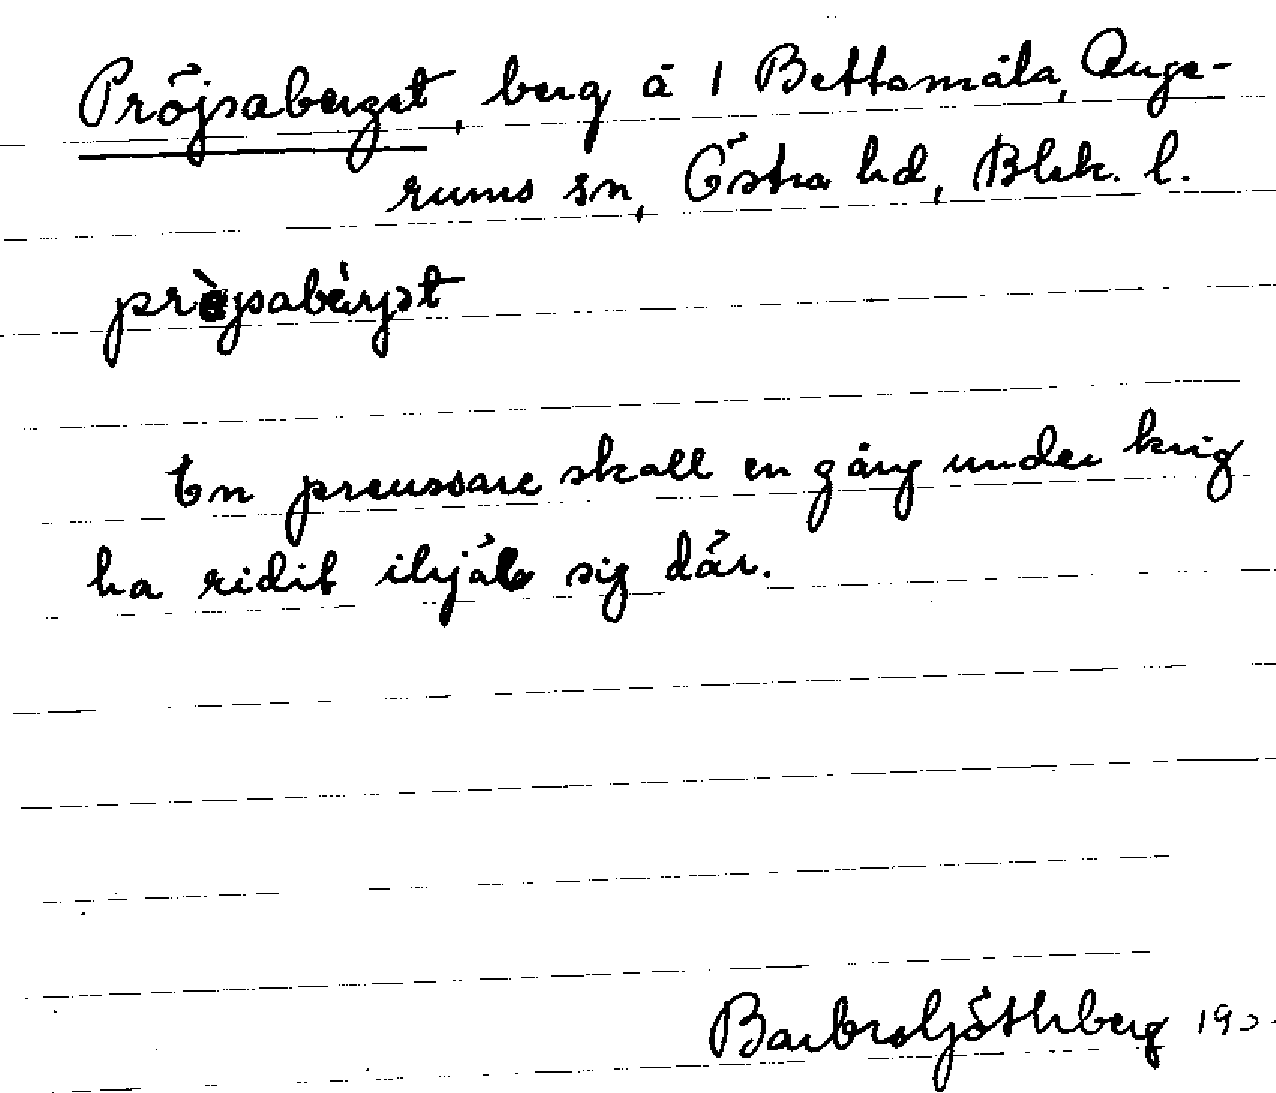 Pröjsaberget, berg å 1 Bettsmåla, Ange-
rums sn, Östra hd, Blek. l.
prèjsabèrjət
En preussare skall en gång under krig
ha ridit ihjäl sig där.
Barbro Göthberg